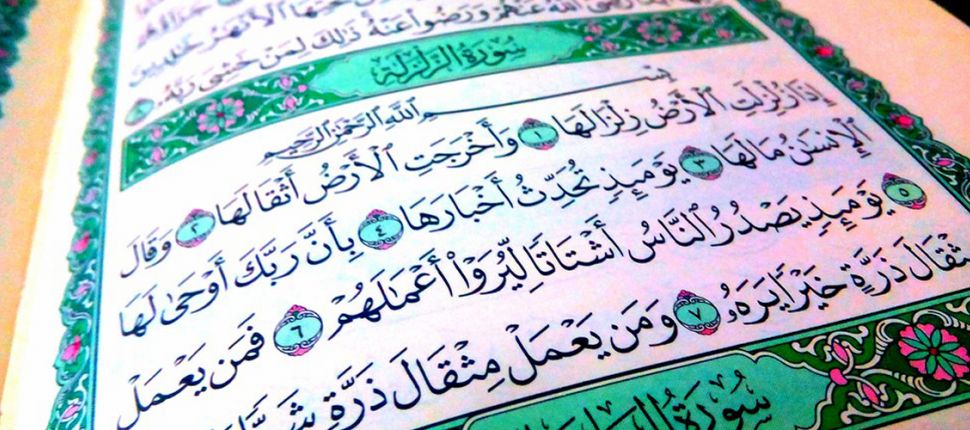 خَٰلِدِينَ
رَّضِيَ ٱللَّهُ عَنْهُمْ وَرَضُوا۟ عَنْهُ ذَٰلِكَ لِمَنْ خَشِيَ رَبَّهُۥ ٨
سُورَةُ الزَّلْزَلَةِ
بِسْمِ ٱللَّهِ ٱلرَّحْمَٰنِ ٱلرَّحِيمِ
إِذَا زُلْزِلَتِ ٱلْأَرْضُ زِلْزَالَهَا ١ وَأَخْرَجَتِ ٱلْأَرْضُ أَثْقَالَهَا ٢ وَقَالَ
ٱلْإِنسَٰنُ مَا لَهَا ٣ يَوْمَئِذٍ تُحَدِّثُ أَخْبَارَهَا ٤ بِأَنَّ رَبَّكَ أَوْحَىٰ لَهَا
٥ يَوْمَئِذٍ يَصْدُرُ ٱلنَّاسُ أَشْتَاتًا لِّيُرَوْا۟ أَعْمَٰلَهُمْ ٦ فَمَن يَعْمَلْ
مِثْقَالَ ذَرَّةٍ خَيْرًا يَرَهُۥ ٧ وَمَن يَعْمَلْ مِثْقَالَ ذَرَّةٍ
سُورَةُ